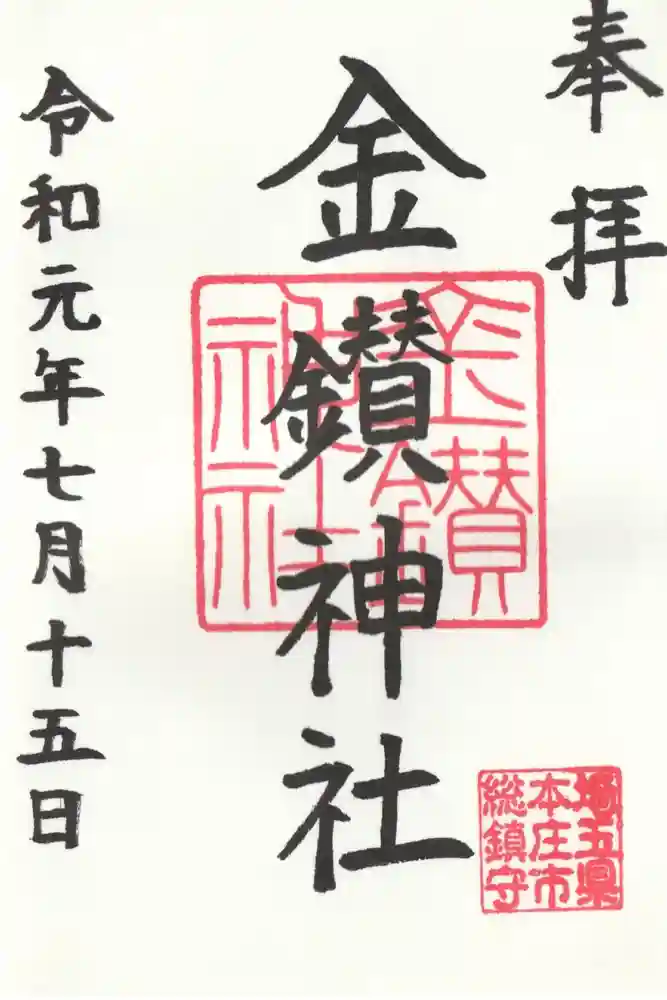 奉拝
金鑚神社
埼玉県
本庄市
総鎮守
令和元年七月十五日